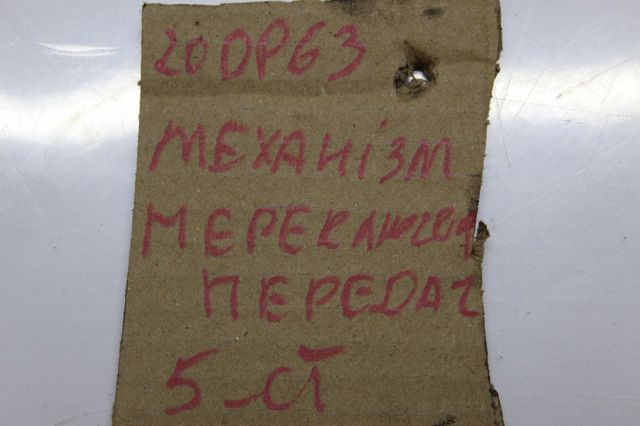 20DP63
МЕХАНІЗМ
ПЕРЕДАЧ
5-СТ